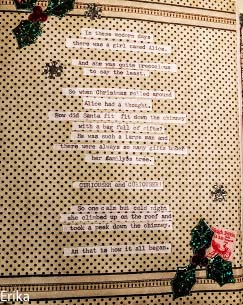 In these modern days
there was a girl named Alice.
And she was quite precocious
to say the least.
So when Christmas rolled around
Alice had a thought.
How did Santa fit fit down the chimney
with a bag full of gifts?
He was such a large man and
there were always so many gifts under
her family's tree.
CURIOUSER and CURIOUSER!
So one calm but cold night
she climbed up on the roof and
took a peek down the chimney.
An that is how it all began.
Erika